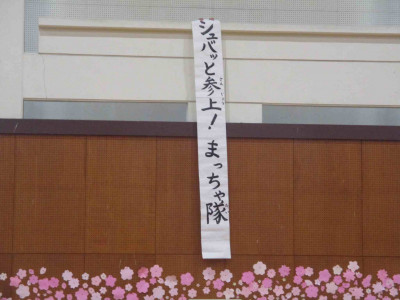 シュバッと参上！まっちゃ隊